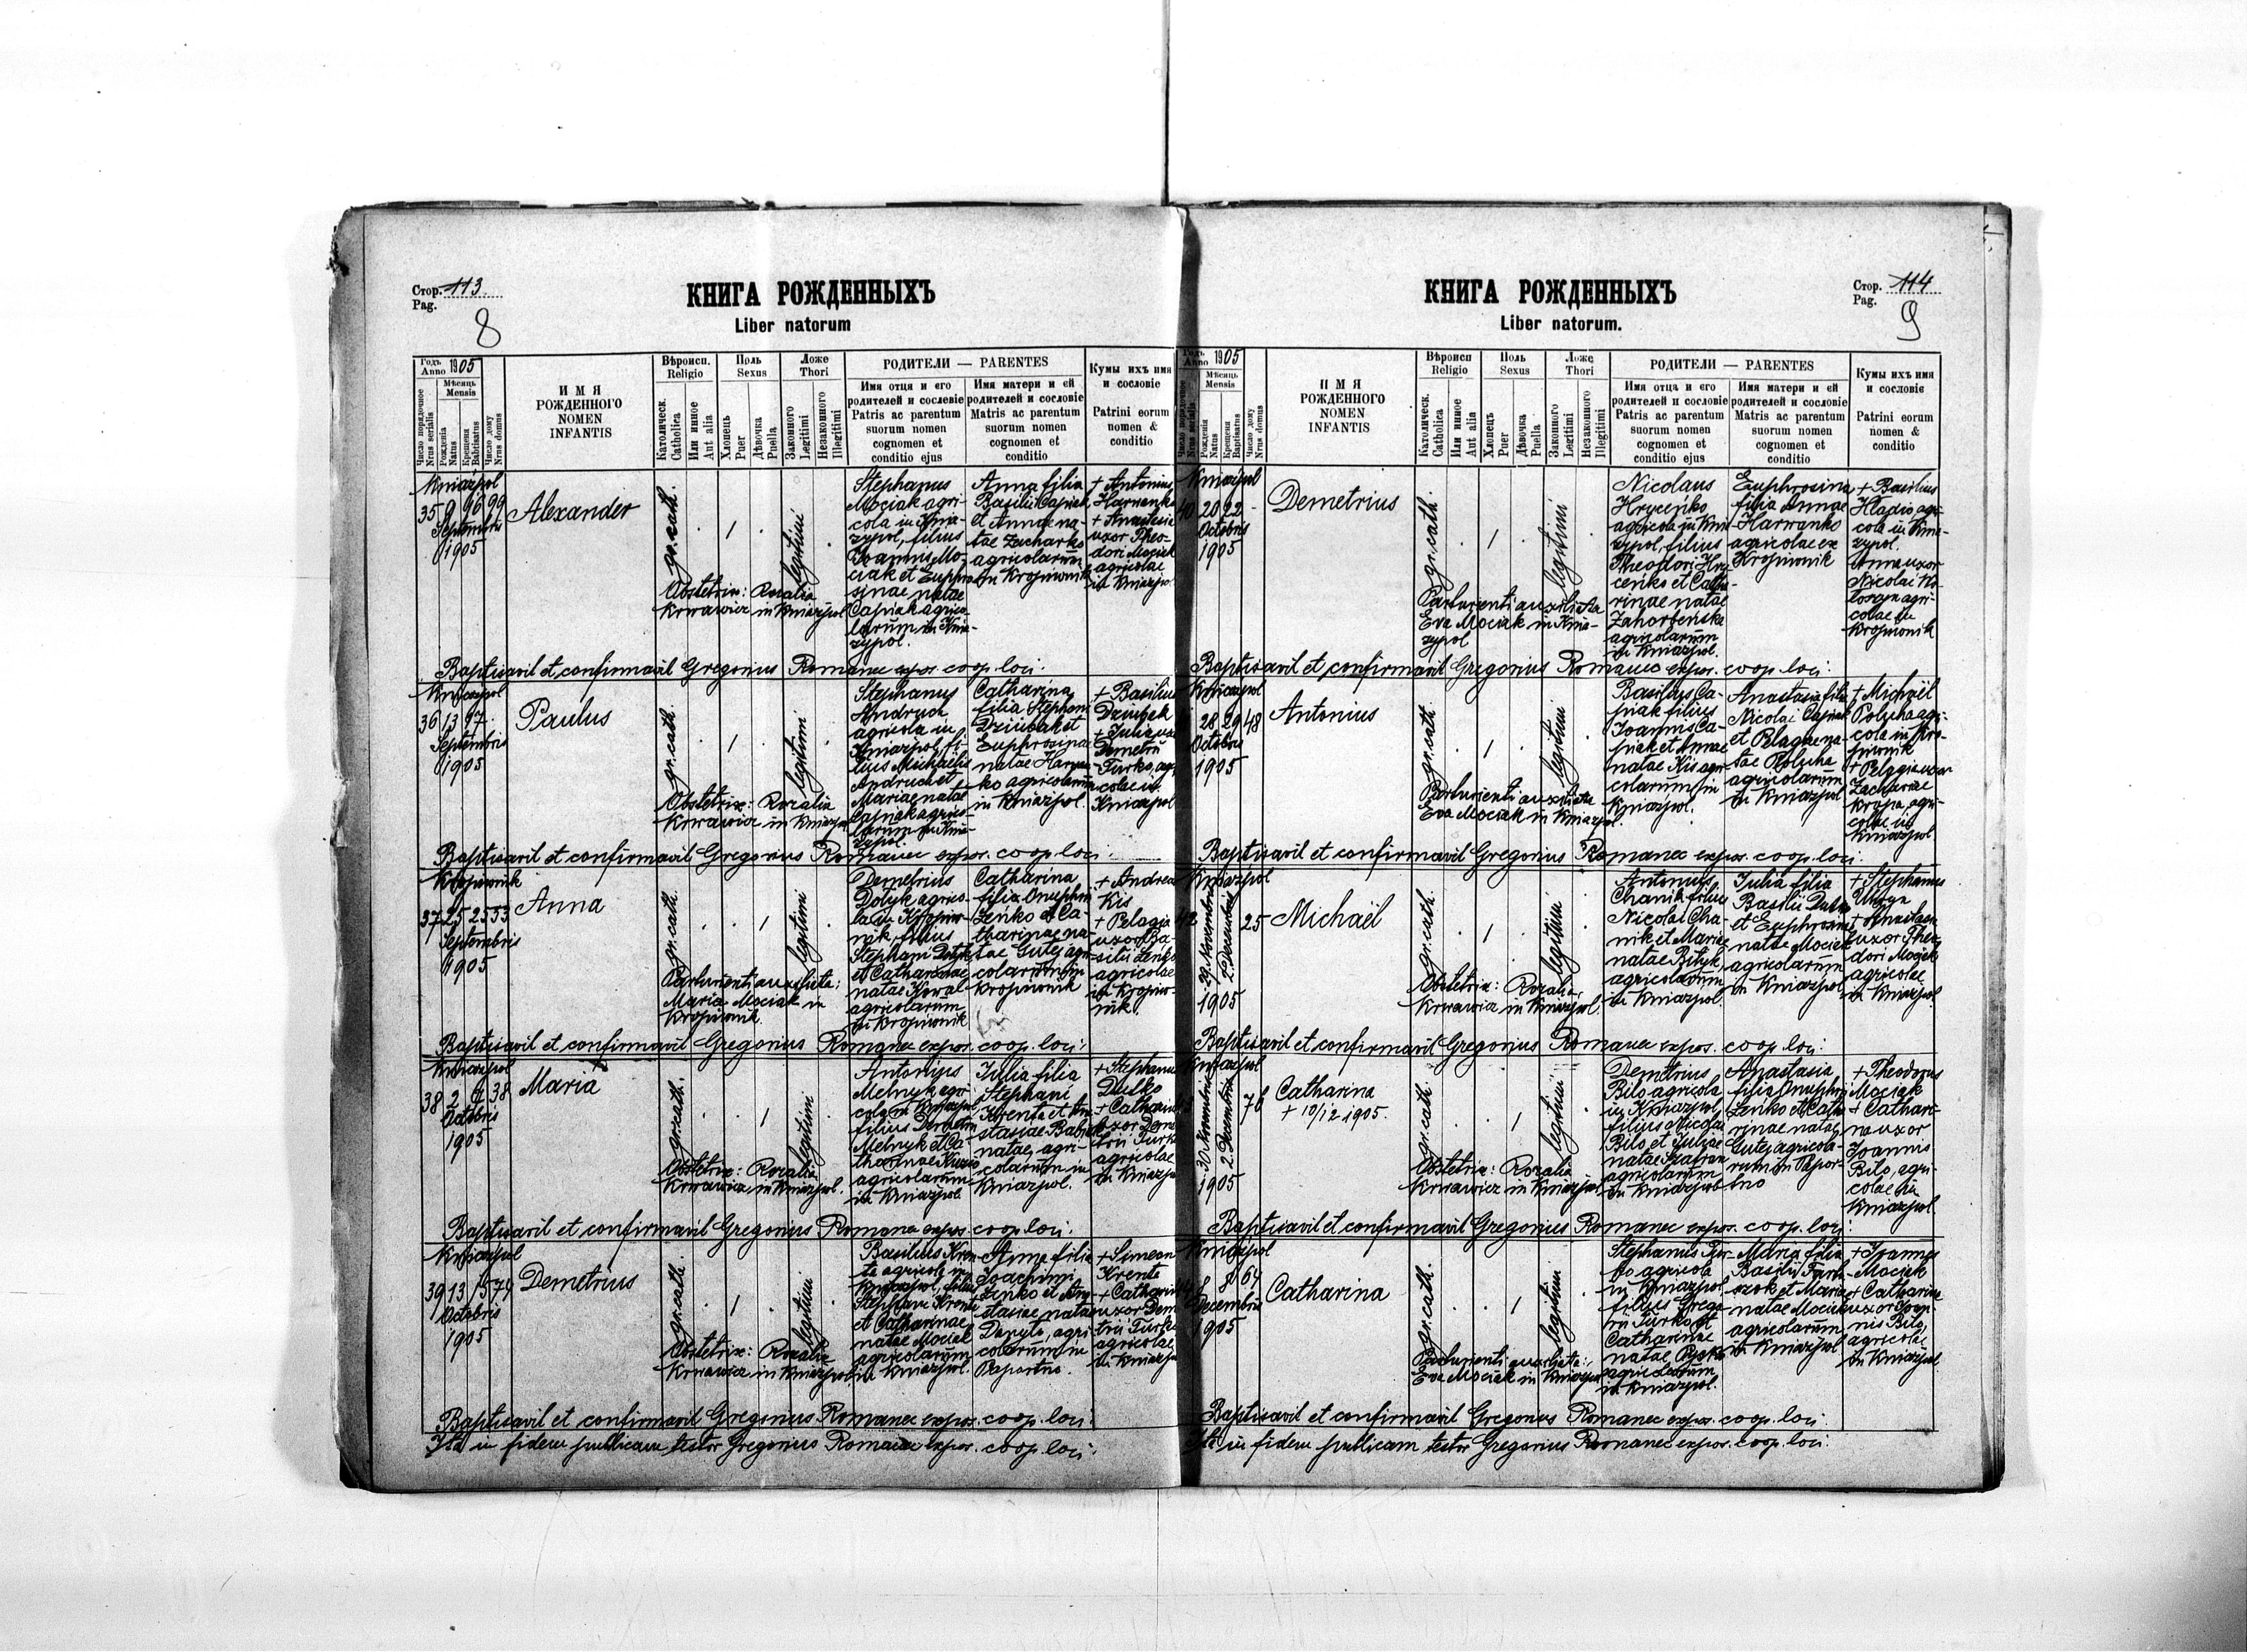 Стор. 113
Pag.
8
КНИГА РОЖДЕННЫХЪ
Liber natorum
Годъ 1905
Anno
Мѣсяць
Mensis
Число порядочное
Nrus serialis
Рожденія
Natus
Крещенія
Babtisatus
Число дому
Nrus domus
ИМЯ
РОЖДЕННОГО
NOMEN
INFANTIS
Вѣроисп.
Religio
Католическ.
Catholica
Или инное
Aut alia
Поль
Sexus
Хлопець
Puer
Дѣвочка
Puella
Ложе
Thori
Законного
Legitimi
Незаконного
Illegitimi
РОДИТЕЛИ — PARENTES
Имя отца и его
родителей и сословіе
Patris ac parentum
suorum nomen
cognomen et
conditio ejus
Имя матери и ей
родителей и сословіе
Matris ac parentum
suorum nomen
cognomen et
conditio
Кумы ихъ имя
и сословіе
Patrini eorum
nomen &
conditio
Kniazpol
35 9 16 99
Septembris
1905
Alexander
gr. cath.
legitimi
Obstetrix: Rozalia
Krwawicz in Kniazpol
Stephanus
Mociak agri-
cola in Knia-
zypol, filius
Joannis Mo-
ciak et Euphro-
sinae natae
Capiak agrico-
larum in Knia-
zypol.
Anna filia
Basilii Capiak
et Annae na-
tae Zacharko
agricolarum
in Kropiwnik
+ Antonius
Harwanko
+ Anastasia
uxor Theo-
dori Mociak
agricolae
in Kniazpol
Baptisavit et confirmavit Gregorius Romanec expos. coop. loci.
Kniazpol
36 13 17
Septembris
1905
Paulus
gr. cath.
legitimi
Obstetrix: Rozalia
Krwawicz in Kniazpol
Stephanus
Andruch
agricola in
Kniazpol, fi-
lius Michaelis
Andruch et
Mariae natae
Capiak agrico-
larum in Knia-
zypol.
Catharina
filia Stephani
Dziubak et
Euphrosinae
natae Harwan-
ko agricolarum
in Kniazpol.
+ Basilius
Dziubak
+ Julia uxor
Demetrii
Turko, agri-
colae in
Kniazpol
Baptisavit et confirmavit Gregorius Romanec expos. coop. loci
Kropiwnik
37 25 25 53
Septembris
1905
Anna
gr. cath.
legitimi
Parturienti auxiliata:
Maria Mociak in
Kropiwnik.
Demetrius
Dotyk agrico-
la in Kropiw-
nik, filius
Stephani Dotyk
et Catharinae
natae Kowal
agricolarum
in Kropiwnik
Catharina
filia Onuphrii
Zeńko et Ca-
tharinae na-
tae Gutej agri-
colarum in
Kropiwnik
+ Andreas
Kis
+ Pelagia
uxor Ba-
silii
agricolae
in Kropiw-
nik.
Baptisavit et confirmavit Gregorius Romanec expos. coop. loci.
Kniazpol
38 2 9 38
Octobris
1905
Maria
gr. cath.
legitimi
Obstetrix: Rozalia
Krwawicz in Kniazpol.
Antonius
Melnyk agri-
cola in Kniazpol
filius Demetrii
Melnyk et Ca-
tharinae
agricolarum
in Kniazpol.
Iulia filia
Stephani
Krenta et Ana-
stasiae
natae, agri-
colarum in
Kniazpol.
+ Stephanus
Dulko
+ Catharina
uxor Deme-
trii Turko
agricolae
in Kniazpol
Baptisavit et confirmavit Gregorius Romanec expos. coop. loci.
Kniazpol
39 13 15 74
Octobris
1905
Demetrius
gr. cath.
legitimi
Obstetrix: Rozalia
Krwawicz in Kniazpol
Basilius Kren-
ta agricola in
Kniazpol, filius
Stephani Krenta
et Catharinae
natae Mociak
agricolarum
in Kniazpol.
Anna filia
Joachimi
Zenko et Ana-
stasiae natae
Danyto, agri-
colarum in
Papartno.
+ Simeon
Krenta
+ Catharina
uxor Deme-
trii Turko
agricolae
in Kniazpol
Baptisavit et confirmavit Gregorius Romanec expos. coop. loci.
Ita in fidem publicam testor Gregorius Romanec expos. coop. loci.
Стор. 114
Pag.
9
КНИГА РОЖДЕННЫХЪ
Liber natorum.
Годъ 1905
Anno
Мѣсяць
Mensis
Число порядочное
Nrus serialis
Рожденія
Natus
Крещенія
Baptisatus
Число дому
Nrus domus
ИМЯ
РОЖДЕННОГО
NOMEN
INFANTIS
Вѣроисп
Religio
Католическ.
Catholica
Или инное
Aut alia
Поль
Sexus
Хлопець
Puer
Дѣвочка
Puella
Ложе
Thori
Законного
Legitimi
Незаконного
Illegitimi
РОДИТЕЛИ — PARENTES
Имя отца и его
родителей и сословіе
Patris ac parentum
suorum nomen
cognomen et
conditio ejus
Имя матери и ей
родителей и сословіе
Matris ac parentum
suorum nomen
cognomen et
conditio
Кумы ихъ имя
и сословіе
Patrini eorum
nomen &
conditio
Kniazpol
40 20 22
Octobris
1905
Demetrius
gr. cath.
legitimi
Parturienti auxiliata
Eva Mociak in Knia-
zypol
Nicolaus
Hryceńko
agricola in Kni-
zypol, filius
Theodori Hry-
ceńko et Catha-
rinae natae
Zahorbeńska
agricolarum
in Kniazpol.
Euphrosina
filia Annae
Harwanko
agricolae ex
Kropiwnik
+ Basilius
Hladio agri-
cola in Knia-
zypol.
Anna uxor
Nicolai
agri-
colae in
Kropiwnik
Baptisavit et confirmavit Gregorius Romanec expos. coop. loci.
Kniazpol
28 29 48
Octobris
1905
Antonius
gr. cath.
legitimi
Parturienti auxiliata
Eva Mociak in Kniazpol.
Basilius Ca-
piak filius
Joannis Ca-
piak et Annae
natae Kis agri-
colarum in
Kniazpol.
Anastasia filia
Nicolai Capiak
et Pelagiae na-
tae Polycha
agricolarum
in Kniazpol
+ Michaël
Polycha agri-
cola in Kro-
piwnik
+ Pelagia uxor
Zachariae
Kropa, agri-
colae in
Kniazpol
Baptisavit et confirmavit Gregorius Romanec expos. coop. loci.
Kniazpol
42 25
29. Novembris
2. Decembris
1905
Michaël
gr. cath.
legitimi
Obstetrix: Rozalia
Krwawicz in Kniazpol.
Antonius
Chanik filius
Nicolai Cha-
nik et Mariae
natae Bityk,
agricolarum
in Kniazpol.
Iulia filia
Basilii
et Euphrosinae
natae Mociak
agricolarum
in Kniazpol
+ Stephanus
+ Anastasia
uxor Theo-
dori Mociak
agricolae
in Kniazpol.
Baptisavit et confirmavit Gregorius Romanec expos. coop. loci.
Kniazpol
76
30 Novembris
2. Decembris
1905
Catharina
+ 10/12 1905.
gr. cath
legitimi
Obstetrix: Rozalia
Krwawicz in Kniazpol
Demetrius
Bilo agricola
in Kniazpol,
filius Nicolai
Bilo et Juliae
natae
agricolarum
in Kniazpol
Anastasia,
filia Onuphrii
Zenko et Catha-
rinae natae
Gutej agricola-
rum in Papor-
tno
+ Theodorus
Mociak
+ Cathari-
na uxor
Joannis
Bilo, agri-
colae in
Kniazpol.
Baptisavit et confirmavit Gregorius Romanec expos. coop. loci.
Kniazpol
8 64
Decembris
1905
Catharina
gr. cath.
legitimi
Parturienti auxiliata:
Eva Mociak in Kniazpol
Stephanus Tur-
ko agricola
in Kniazpol.
filius Grego-
rii Turko et
Catharinae
natae
agricolarum
in Kniazpol.
Maria filia
Basilii
et Mariae
natae Mociak
agricolarum
in Kniazpol
+ Joannes
Mociak
+ Catharina
uxor Joan-
nis Bilo,
agricolae
in Kniazpol.
Baptisavit et confirmavit Gregorius Romanec expos. coop. loci.
Ita in fidem publicam testor Gregorius Romanec expos. coop. loci.